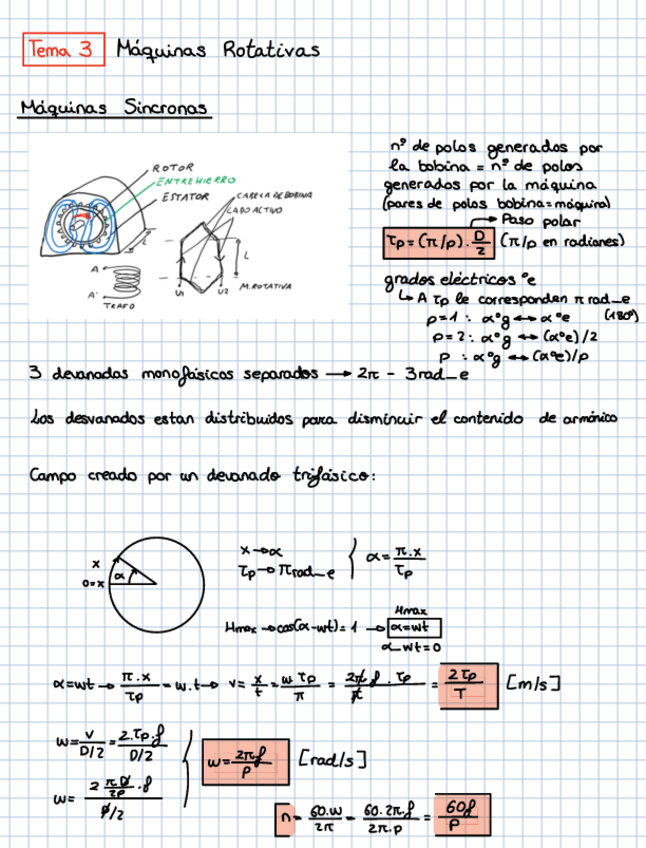 Tema 3 Máquinas Rotativas
Máquinas Síncronas
ROTOR
ENTREHIERRO
ESTATOR
L
CABEZA DE BOBINA
LADO ACTIVO
L
A
A'
TRAFO
U1 U2 M.ROTATIVA
nº de polos generados por
la bobina = nº de polos
generados por la máquina
(pares de polos bobina=máquina)
→ Paso polar
τp = (π/p) · D/2 (π/p en radianes)
grados eléctricos ºe
↳ A τp le corresponden π rad_e
(180º)
p=1 : αºg ↔ αºe
p=2 : αºg ↔ (αºe)/2
p : αºg ↔ (αºe)/p
3 devanados monofásicos separados → 2π - 3rad_e
Los desvanados estan distribuidos para disminuir el contenido de armónico
Campo creado por un devanado trifásico:
x
0=x α
x→α
τp→πrad_e } α = π.x/τp
Hmax
Hmax →cos(α-wt)=1 → α=wt
α-wt=0
α=wt → π.x/τp = w.t → v = x/t = w τp/π = 2πf . τp/π = 2τp/T [m/s]
w = v/(D/2) = 2.τp.f/(D/2)
w = (2 πD/2p .f)/(D/2)
w = 2πf/p [rad/s]
n = 60.w/2π = 60.2π.f/2π.p = 60f/p